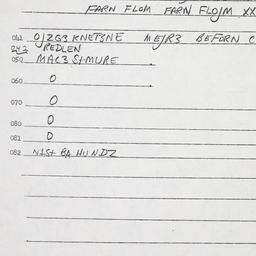 FARN FLOM FARN FLO/M XX
041 O/2G3 KNET3NE ME/R3 BEFORN C
242 REDLEN
050 MAC3 S+MURE
060 O
070 O
080 O
081 O
082 N1S+ BA HUNDZ